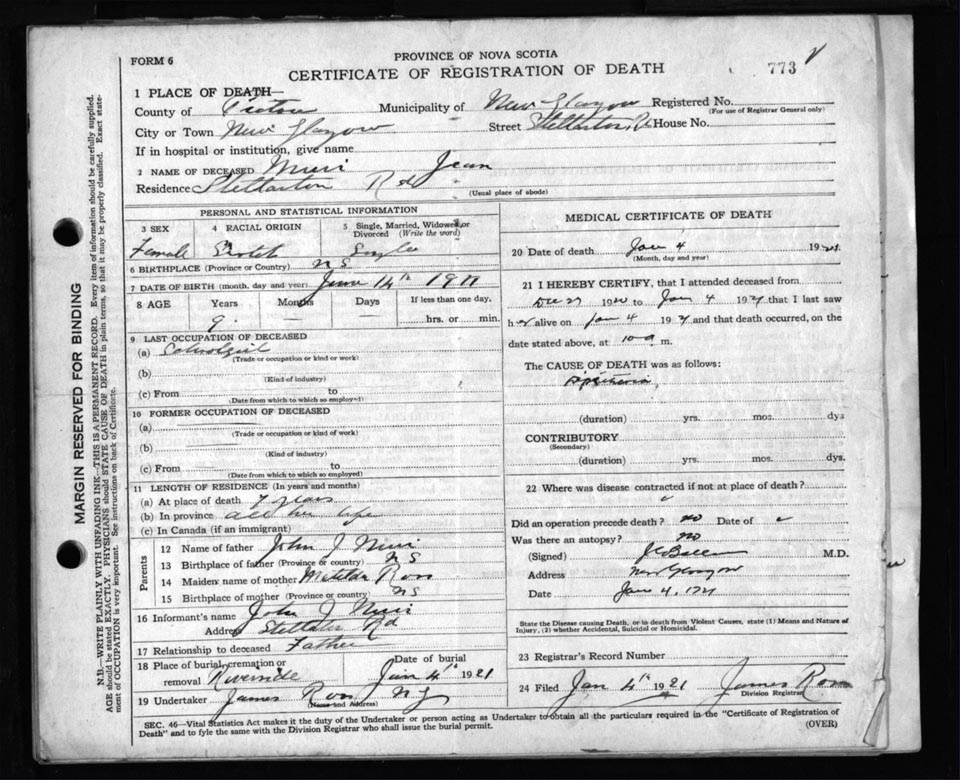 FORM 6
PROVINCE OF NOVA SCOTIA
CERTIFICATE OF REGISTRATION OF DEATH
773
1 PLACE OF DEATH—
County of Pictou Municipality of New Glasgow Registered No.
(For use of Registrar General only)
City or Town New Glasgow Street Stellarton Rd House No.
If in hospital or institution, give name
2 NAME OF DECEASED Muir Jean
Residence Stellarton Rd
(Usual place of abode)
PERSONAL AND STATISTICAL INFORMATION
3 SEX 4 RACIAL ORIGIN 5 Single, Married, Widowed or Divorced (Write the word)
Female Scotch Single
6 BIRTHPLACE (Province or Country) N S
7 DATE OF BIRTH (month, day and year) June 14th 1911
8 AGE Years Months Days If less than one day,
9 hrs. or min.
9 LAST OCCUPATION OF DECEASED
(a) Schoolgirl
(Trade or occupation or kind or work)
(b)
(Kind of industry)
(c) From to
(Date from which to which so employed)
10 FORMER OCCUPATION OF DECEASED
(a)
(Trade or occupation or kind of work)
(b)
(Kind of industry)
(c) From to
(Date from which to which so employed)
11 LENGTH OF RESIDENCE (In years and months)
(a) At place of death 7 years
(b) In province all her life
(c) In Canada (if an immigrant)
Parents
12 Name of father John J Muir
13 Birthplace of father (Province or country) N S
14 Maiden name of mother Matilda Ross
15 Birthplace of mother (Province or country) N S
16 Informant's name John J Muir
Address Stellarton Rd
17 Relationship to deceased Father
18 Place of burial, cremation or removal Riverside Date of burial Jan 4th 1921
19 Undertaker James Ross N G
(Name and Address)
MEDICAL CERTIFICATE OF DEATH
20 Date of death Jan 4 1921
(Month, day and year)
21 I HEREBY CERTIFY, that I attended deceased from
Dec 27 1920 to Jan 4 1921 that I last saw
her alive on Jan 4 1921 and that death occurred, on the
date stated above, at 10 a m.
The CAUSE OF DEATH was as follows:
Diphtheria
(duration) yrs. mos. dys
CONTRIBUTORY
(Secondary)
(duration) yrs. mos. dys.
22 Where was disease contracted if not at place of death?
Did an operation precede death? no Date of
Was there an autopsy? no
(Signed) M.D.
Address New Glasgow
Date Jan 4, 1921
State the Disease causing Death, or in death from Violent Causes, state (1) Means and Nature of
Injury, (2) whether Accidental, Suicidal or Homicidal.
23 Registrar's Record Number
24 Filed Jan 4th 1921 James Ross
Division Registrar
SEC. 46—Vital Statistics Act makes it the duty of the Undertaker or person acting as Undertaker to obtain all the particulars required in the "Certificate of Registration of
Death" and to fyle the same with the Division Registrar who shall issue the burial permit.
(OVER)
MARGIN RESERVED FOR BINDING
N.B.—WRITE PLAINLY WITH UNFADING INK—THIS IS A PERMANENT RECORD. Every item of information should be carefully supplied.
AGE should be stated EXACTLY. PHYSICIANS should STATE CAUSE OF DEATH in plain terms, so that it may be properly classified. Exact state-
ment of OCCUPATION is very important. See instructions on back of Certificate.